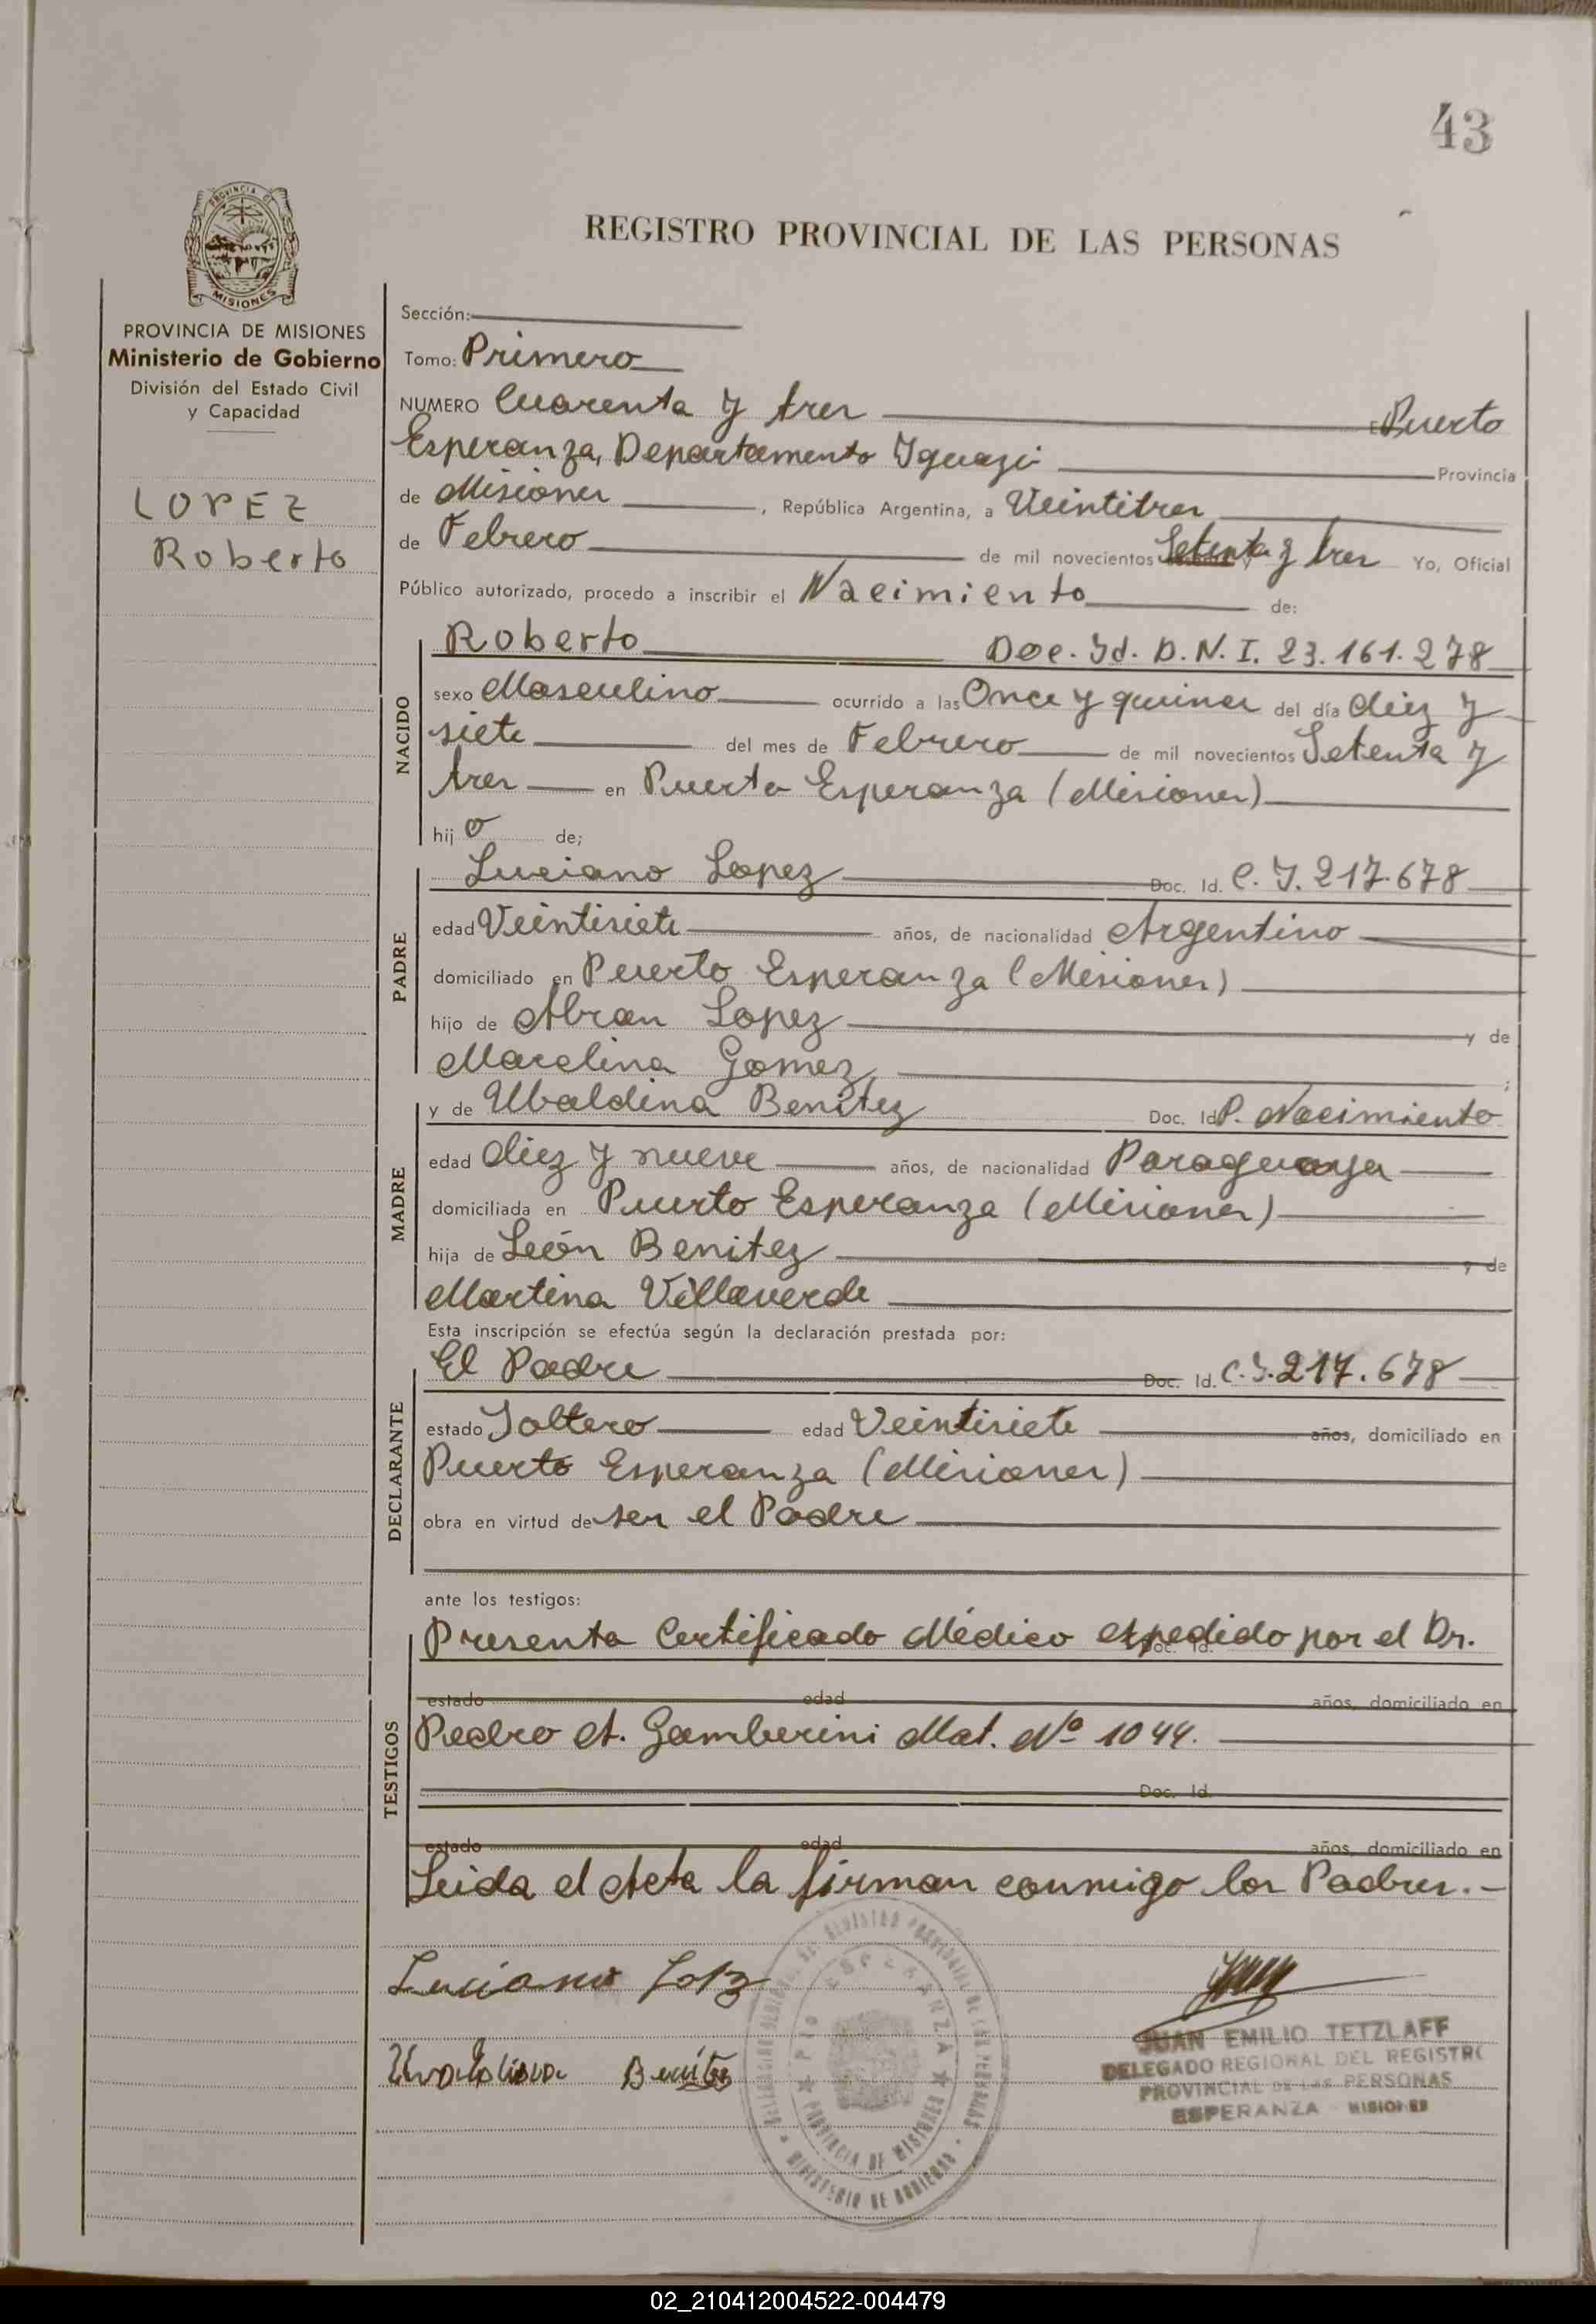 43
PROVINCIA DE
MISIONES
REGISTRO PROVINCIAL DE LAS PERSONAS
PROVINCIA DE MISIONES
Ministerio de Gobierno
División del Estado Civil
y Capacidad
LOPEZ
Roberto
Sección:
Tomo: Primero
NUMERO Cuarenta y tres Puerto
Esperanza, Departamento Iguazú Provincia
de Misiones, República Argentina, a Veintitres
de Febrero de mil novecientos Setenta y tres Yo, Oficial
Público autorizado, procedo a inscribir el Nacimiento de:
NACIDO
Roberto Doc. Id. D.N.I. 23.161.278
sexo Masculino ocurrido a las Once y quince del día diez y
siete del mes de Febrero de mil novecientos Setenta y
tres en Puerto Esperanza (Misiones)
hijo de;
PADRE
Luciano Lopez Doc. Id. C.I. 217.678
edad Veintisiete años, de nacionalidad Argentino
domiciliado en Puerto Esperanza (Misiones)
hijo de Abran Lopez y de
Marcelina Gomez ;
MADRE
y de Ubaldina Benitez Doc. Id P. Nacimiento
edad diez y nueve años, de nacionalidad Paraguaya
domiciliada en Puerto Esperanza (Misiones)
hija de León Benitez y de
Martina Villaverde
Esta inscripción se efectúa según la declaración prestada por:
DECLARANTE
El Padre Doc. Id. C.I. 217.678
estado Soltero edad Veintisiete años, domiciliado en
Puerto Esperanza (Misiones)
obra en virtud de ser el Padre
ante los testigos:
TESTIGOS
Presenta Certificado Médico expedido por el Dr.
Doc. Id.
estado edad años, domiciliado en
Pedro A. Gamberini Mat. Nº 1044.
Doc. Id.
estado edad años, domiciliado en
Leida el Acta la firman conmigo los Padres.-
Luciano Lopz
Benitez
JUAN EMILIO TETZLAFF
DELEGADO REGIONAL DEL REGISTRO
PROVINCIAL DE LAS PERSONAS
ESPERANZA MISIONES
REGISTRO PROVINCIAL DE LAS PERSONAS
PTO ESPERANZA
PROVINCIA DE MISIONES
MINISTERIO DE GOBIERNO
02_210412004522-004479